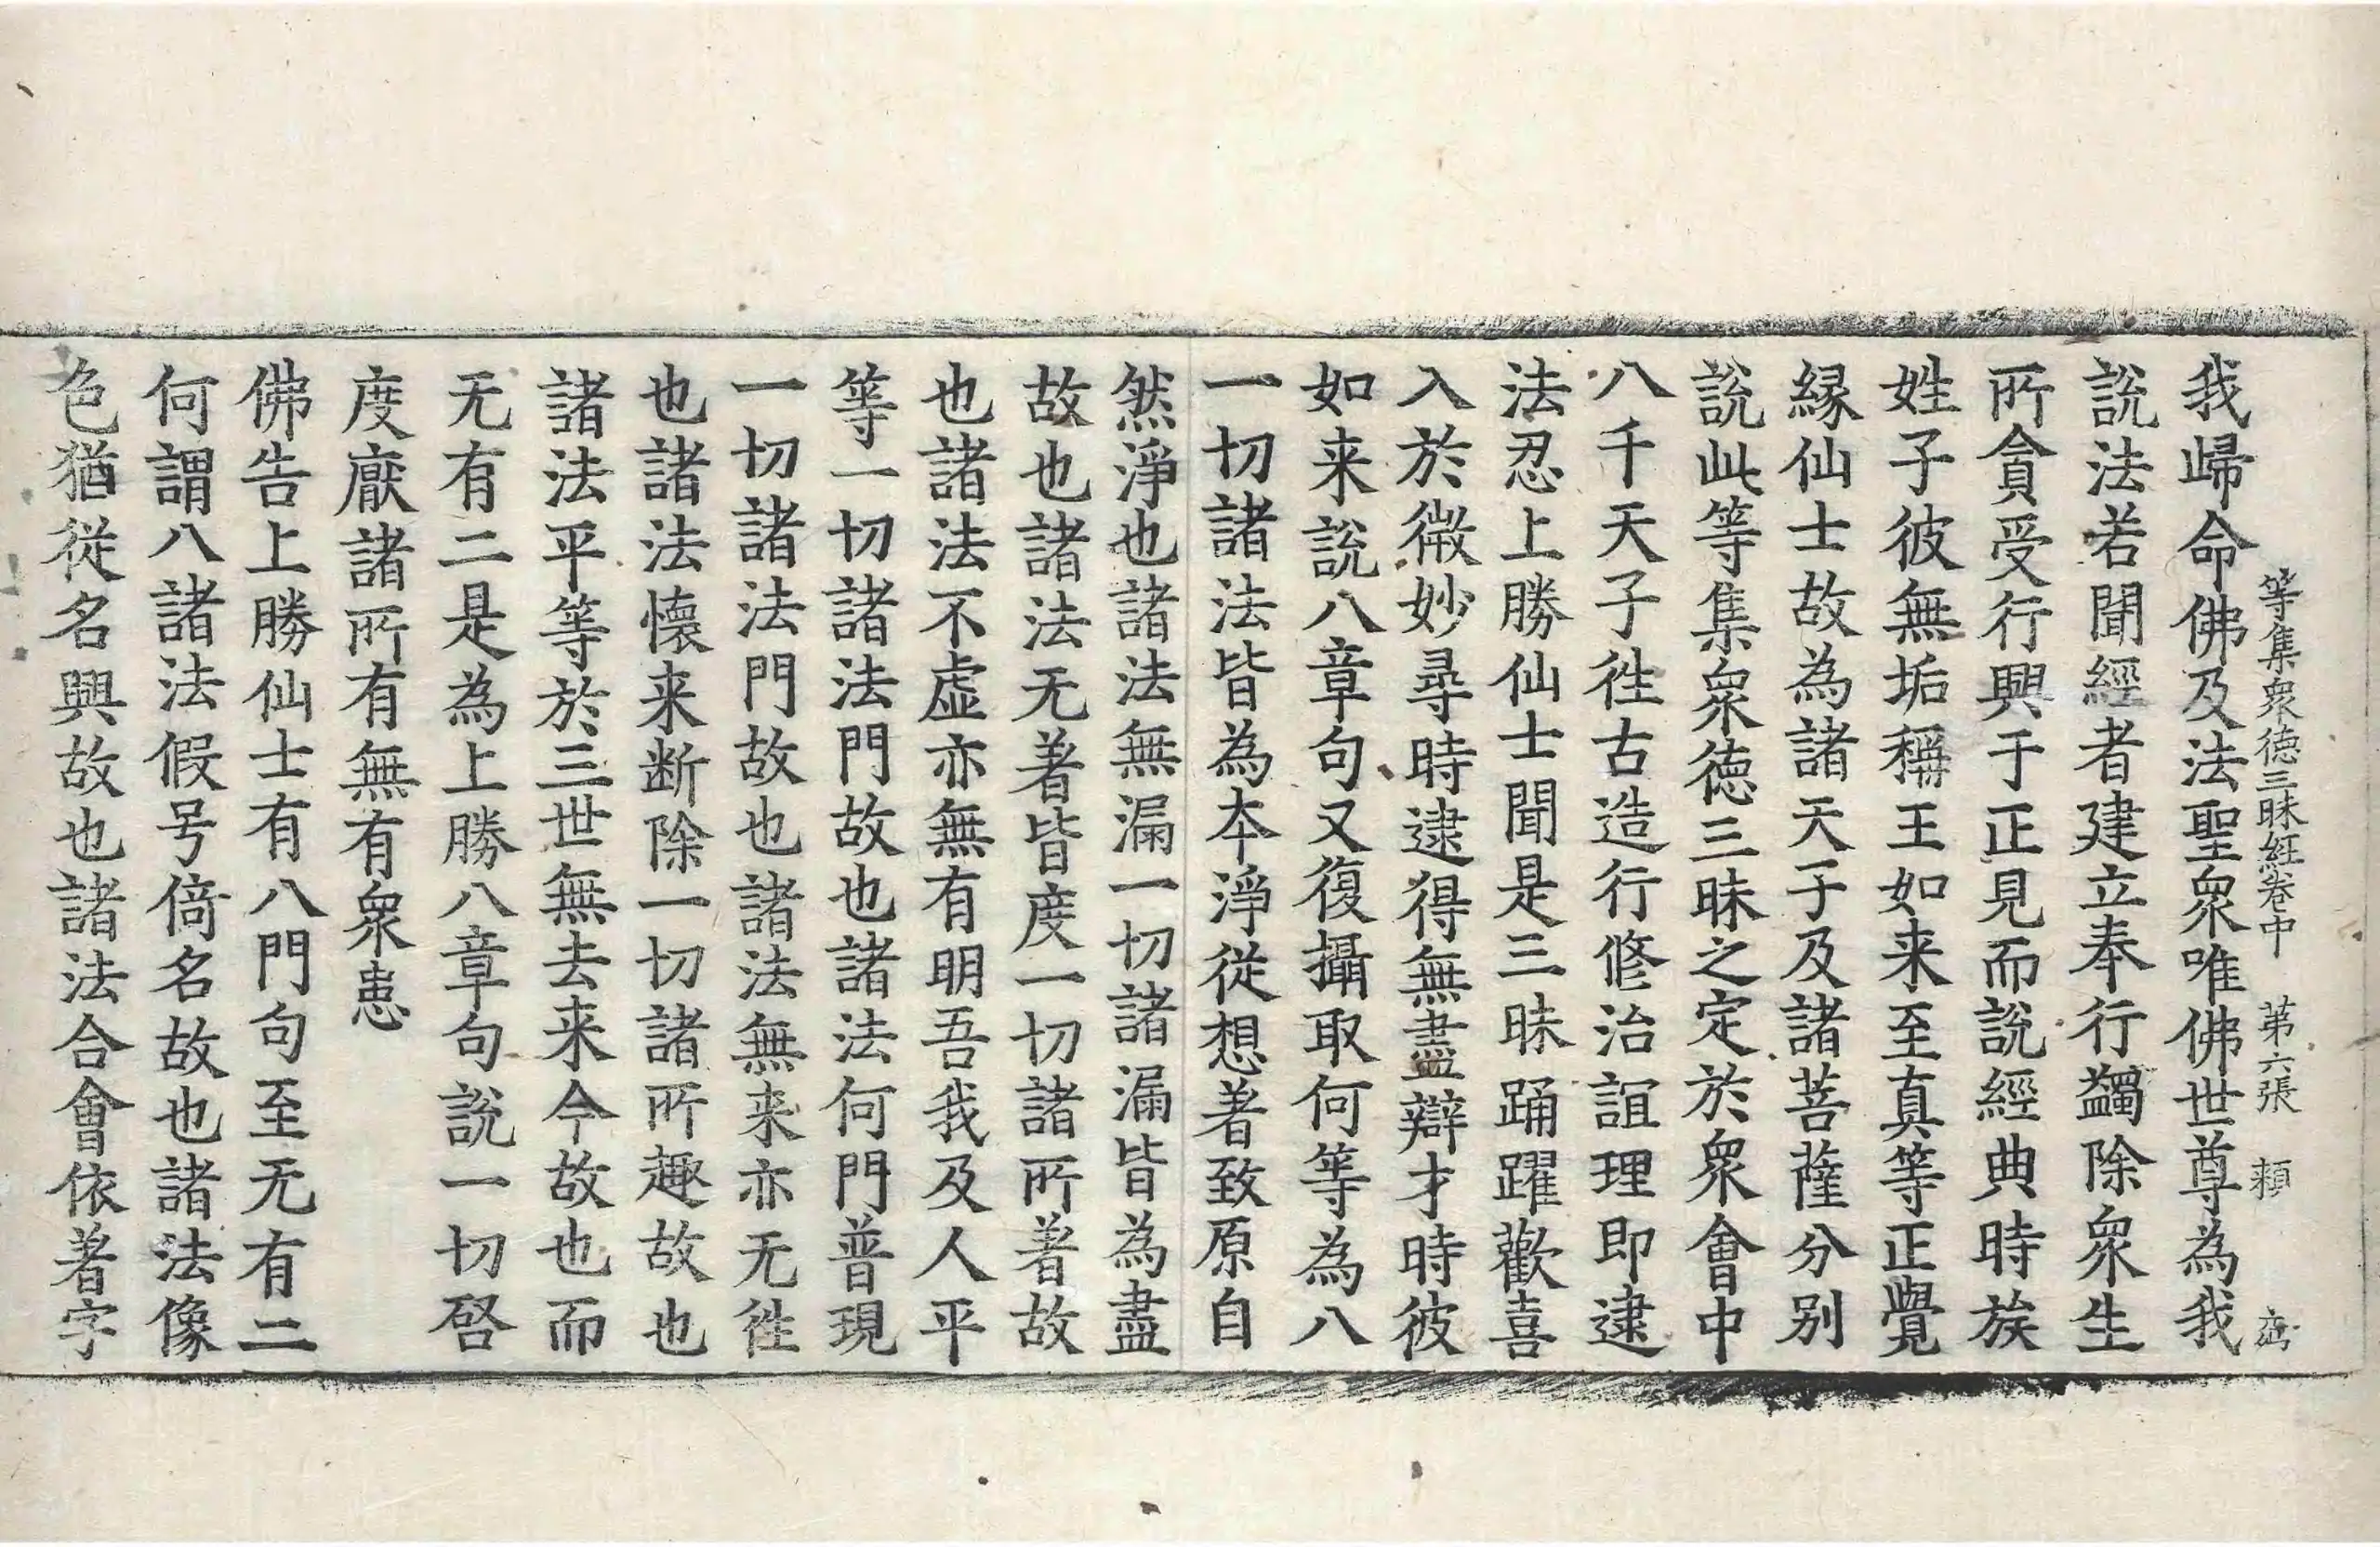 等集衆德三昧経卷中　第六張　頼
我歸命佛及法聖衆唯佛世尊為我
說法若聞經者建立奉行蠲除衆生
所貪受行興于正見而說經典時族
姓子彼無垢稱王如来至真等正覺
緣仙士故為諸天子及諸菩薩分別
說此等集衆德三昧之定於衆會中
八千天子往古造行修治誼理即逮
法忍上勝仙士聞是三昧踊躍歡喜
入於微妙尋時逮得無盡辯才時彼
如来說八章句又復攝取何等為八
一切諸法皆為本淨從想著致原自
然淨也諸法無漏一切諸漏皆為盡
故也諸法无著皆度一切諸所著故
也諸法不虛亦無有明吾我及人平
等一切諸法門故也諸法何門普現
一切諸法門故也諸法無来亦无往
也諸法懷来断除一切諸所趣故也
諸法平等於三世無去来今故也而
无有二是為上勝八章句說一切啓
度廠諸所有無有衆患
佛告上勝仙士有八門句至无有二
何謂八諸法假号倚名故也諸法像
色猶從名興故也諸法合會依著字